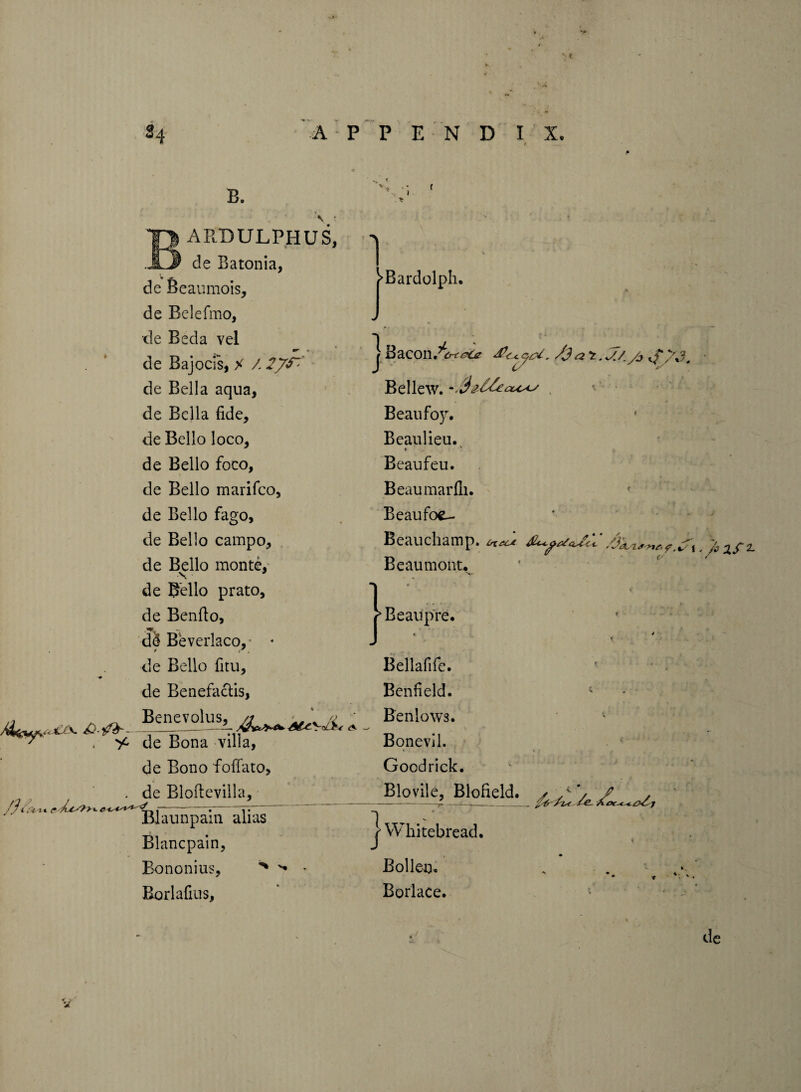 84 APPENDIX.
B.
BARDULPHUS,
de Batonia,
de Beaumois,
de Belesmo,
} Bardolph.
de Beda vel
de Bajocis,
} Bacon.
de Bella aqua, Bellew.
de Bella fide, Beaufoy.
de Bello loco, Beaulieu.
de Bello foco, Beaufeu.
de Bello marisco, Beaumarsh.
de Bello fago, Beaufoe
de Bello campo, Beauchamp.
de Bello monte, Beaumont.
de Bello prato,
de Bensto,
de Beverlaco,
} Beaupre.
de Bello situ, Bellasise.
de Benefactis, Benfield.
Benevolus, Benlows.
de Bona villa, Bonevil.
de Bono fossato, Goodrick.
de Blostevilla, Blovile, Blofield.
Blaunpain alias
Blancpain,
} Whitebread.
Bononius, Bollen.
Borlasius, Borlace.
de